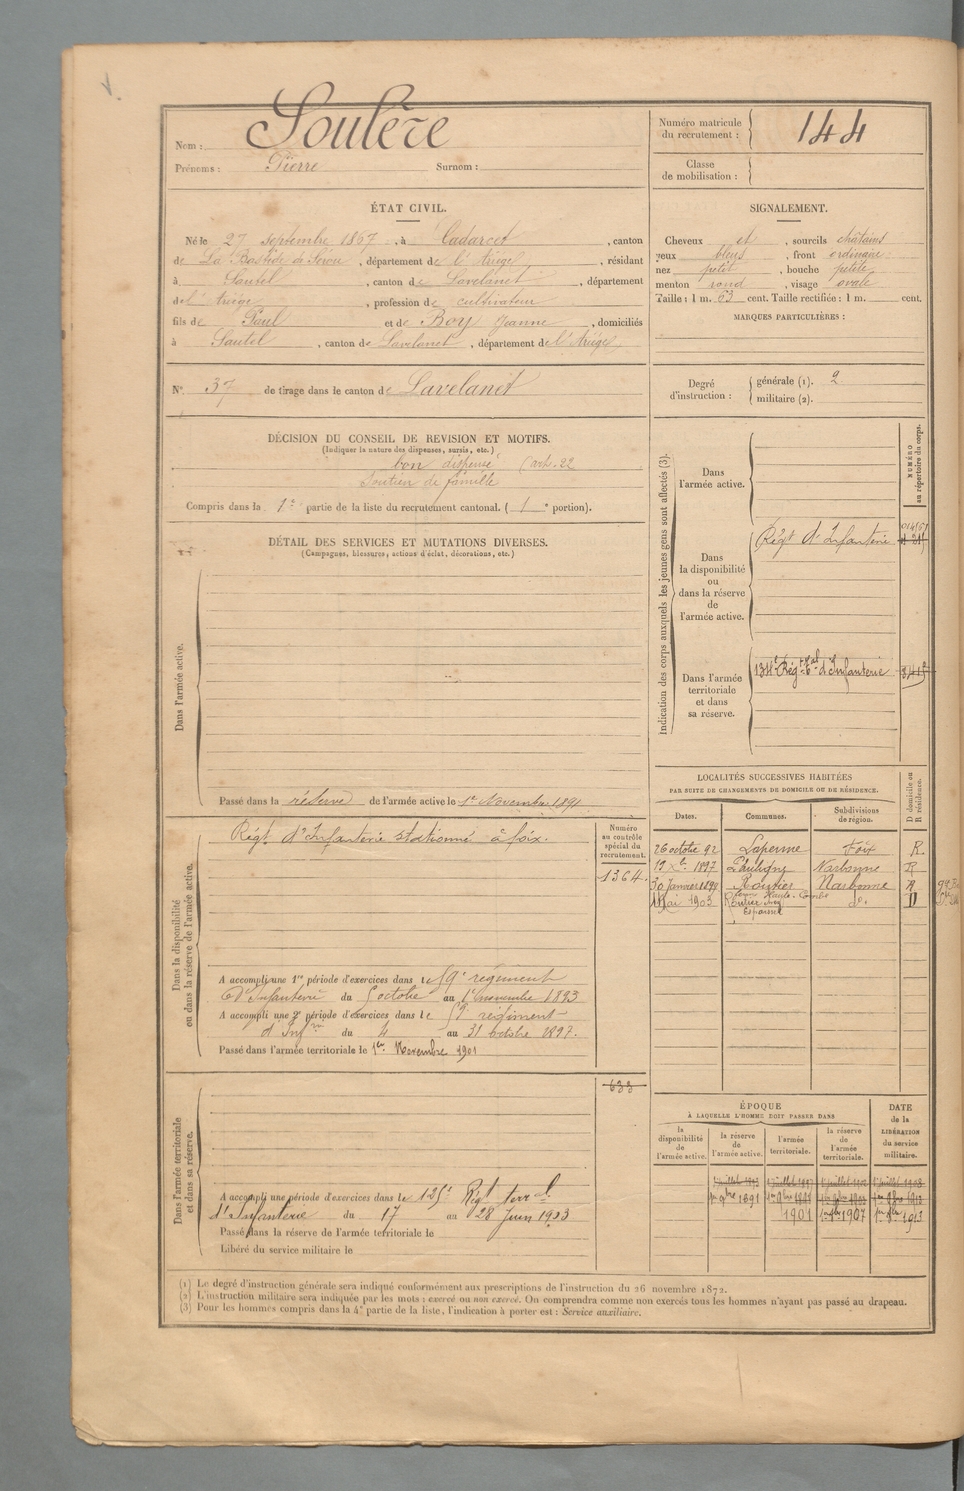 Nom : Soulère
Prénoms : Pierre Surnom :
Numéro matricule du recrutement : 144
Classe de mobilisation :
ÉTAT CIVIL.
Né le 27 septembre 1867, à Cadarcet, canton
de La Bastide de Sérou, département de l'Ariège, résidant
à Sautel, canton de Lavelanet, département
de l'Ariège, profession de cultivateur
fils de Paul et de Boy Jeanne, domiciliés
à Sautel, canton de Lavelanet, département de l'Ariège
N° 37 de tirage dans le canton de Lavelanet
SIGNALEMENT.
Cheveux et, sourcils châtains
yeux bleus, front ordinaire
nez petit, bouche petite
menton rond, visage ovale
Taille : 1 m. 63 cent. Taille rectifiée : 1 m. cent.
MARQUES PARTICULIÈRES :
Degré d'instruction :
générale (1). 2
militaire (2).
DÉCISION DU CONSEIL DE REVISION ET MOTIFS.
(Indiquer la nature des dispenses, sursis, etc.)
bon dispensé (art. 22
Soutien de famille
Compris dans la 1e partie de la liste du recrutement cantonal. ( 1 e portion).
DÉTAIL DES SERVICES ET MUTATIONS DIVERSES.
(Campagnes, blessures, actions d'éclat, décorations, etc.)
Dans l'armée active.
Passé dans la réserve de l'armée active le 1er Novembre 1891
Dans la disponibilité ou dans la réserve de l'armée active.
Régt. d'Infanterie stationné à foix.
Numéro au contrôle spécial du recrutement.
1364.
A accompli une 1re période d'exercices dans le 59e régiment
d'Infanterie du 5 octobre au 1er novembre 1893
A accompli une 2e période d'exercices dans le 59e régiment
d'Infrie du 4 au 31 octobre 1897.
Passé dans l'armée territoriale le 1er Novembre 1901
Dans l'armée territoriale et dans sa réserve.
633
A accompli une période d'exercices dans le 125e Régt terral
d'Infanterie du 17 au 28 Juin 1903
Passé dans la réserve de l'armée territoriale le
Libéré du service militaire le
Indication des corps auxquels les jeunes gens sont affectés (3).
NUMÉRO au répertoire du corps.
Dans l'armée active.
Dans la disponibilité ou dans la réserve de l'armée active.
Régt d'Infanterie
Dans l'armée territoriale et dans sa réserve.
134e Régt tal d'Infanterie
LOCALITÉS SUCCESSIVES HABITÉES
PAR SUITE DE CHANGEMENTS DE DOMICILE OU DE RÉSIDENCE.
D domicile ou R résidence.
Dates. Communes. Subdivisions de région.
26 octobre 92 Laperme Foix R.
1897 Narbonne R
30 Janvier 1898 Routier Narbonne R
Mai 1903 do. D
ÉPOQUE
À LAQUELLE L'HOMME DOIT PASSER DANS
la disponibilité de l'armée active.
la réserve de l'armée active.
l'armée territoriale.
la réserve de l'armée territoriale.
DATE de la LIBÉRATION du service militaire.
1er 9bre 1891
1901 1er 9bre 1907 1er 9bre 1913
(1) Le degré d'instruction générale sera indiqué conformément aux prescriptions de l'instruction du 26 novembre 1872.
(2) L'instruction militaire sera indiquée par les mots : exercé ou non exercé. On comprendra comme non exercés tous les hommes n'ayant pas passé au drapeau.
(3) Pour les hommes compris dans la 4e partie de la liste, l'indication à porter est : Service auxiliaire.